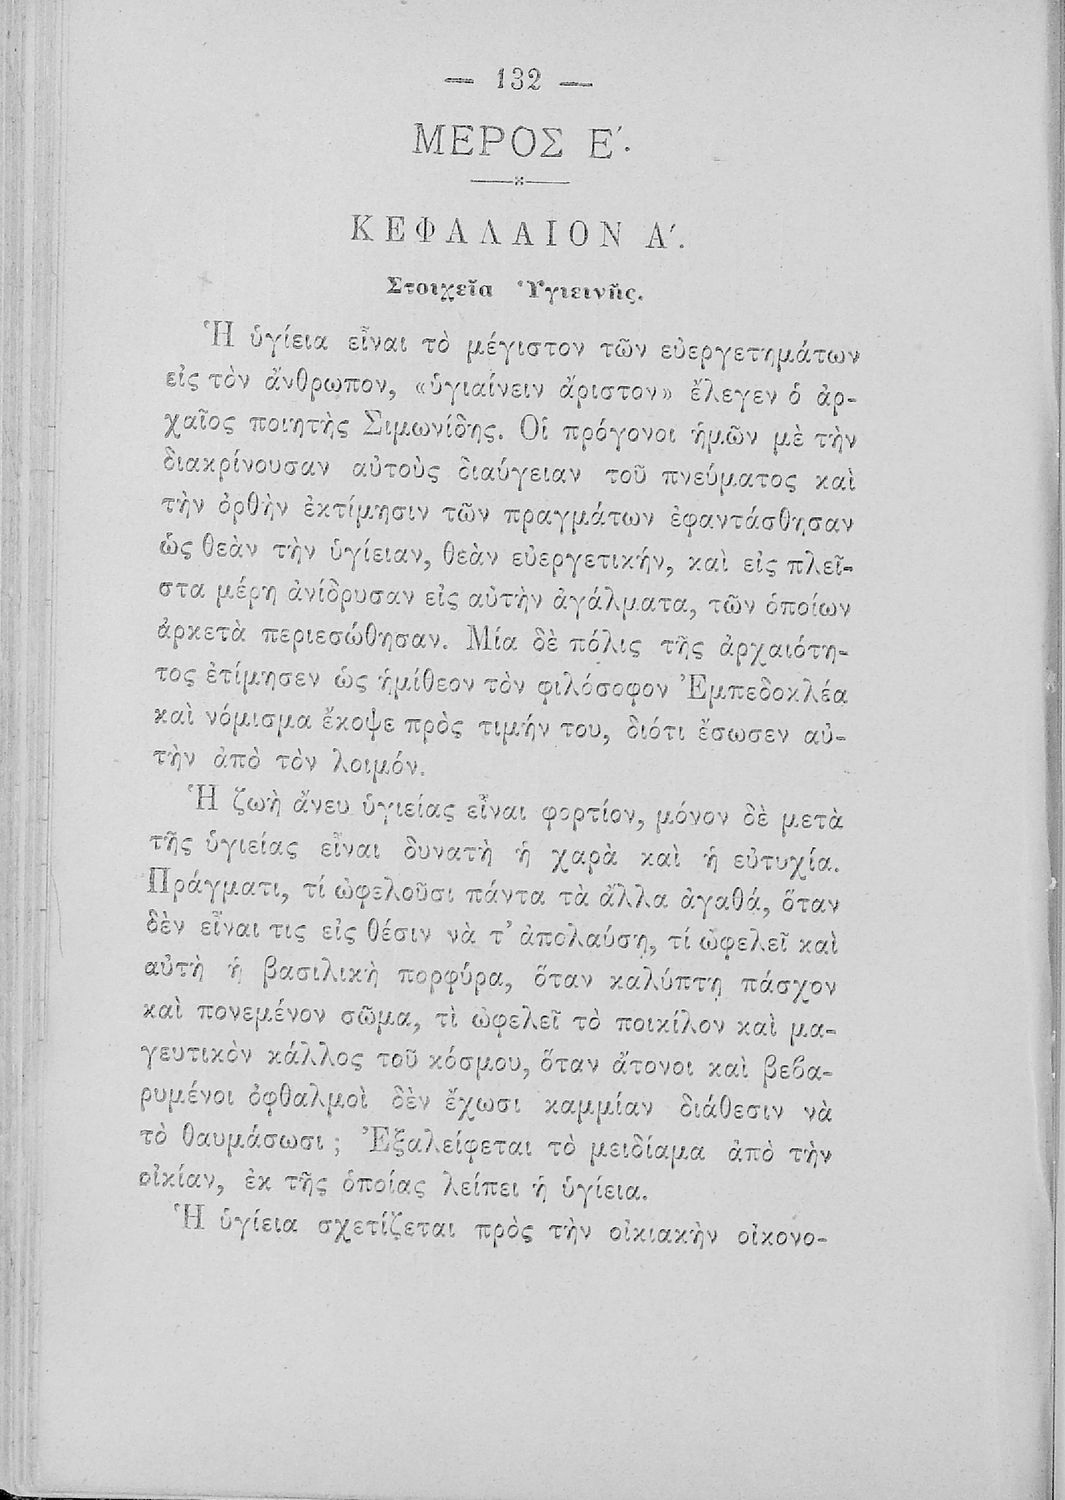 — 132 —
ΜΕΡΟΣ Ε΄.
ΚΕΦΑΛΑΙΟΝ Α΄.
Στοιχεῖα Ὑγιεινῆς.
Ἡ ὑγίεια εἶναι τὸ μέγιστον τῶν εὐεργετημάτων
εἰς τὸν ἄνθρωπον, «ὑγιαίνειν ἄριστον» ἔλεγεν ὁ ἀρ-
χαῖος ποιητὴς Σιμωνίδης. Οἱ πρόγονοι ἡμῶν μὲ τὴν
διακρίνουσαν αὐτοὺς διαύγειαν τοῦ πνεύματος καὶ
τὴν ὀρθὴν ἐκτίμησιν τῶν πραγμάτων ἐφαντάσθησαν
ὡς θεὰν τὴν ὑγίειαν, θεὰν εὐεργετικήν, καὶ εἰς πλεῖ-
στα μέρη ἀνίδρυσαν εἰς αὐτὴν ἀγάλματα, τῶν ὁποίων
ἀρκετὰ περιεσώθησαν. Μία δὲ πόλις τῆς ἀρχαιότη-
τος ἐτίμησεν ὡς ἡμίθεον τὸν φιλόσοφον Ἐμπεδοκλέα
καὶ νόμισμα ἔκοψε πρὸς τιμήν του, διότι ἔσωσεν αὐ-
τὴν ἀπὸ τὸν λοιμόν.
Ἡ ζωὴ ἄνευ ὑγιείας εἶναι φορτίον, μόνον δὲ μετὰ
τῆς ὑγιείας εἶναι δυνατὴ ἡ χαρὰ καὶ ἡ εὐτυχία.
Πράγματι, τί ὠφελοῦσι πάντα τὰ ἄλλα ἀγαθά, ὅταν
δὲν εἶναι τις εἰς θέσιν νὰ τ’ ἀπολαύσῃ, τί ὠφελεῖ καὶ
αὐτὴ ἡ βασιλικὴ πορφύρα, ὅταν καλύπτῃ πάσχον
καὶ πονεμένον σῶμα, τὶ ὠφελεῖ τὸ ποικίλον καὶ μα-
γευτικὸν κάλλος τοῦ κόσμου, ὅταν ἄτονοι καὶ βεβα-
ρυμένοι ὀφθαλμοὶ δὲν ἔχωσι καμμίαν διάθεσιν νὰ
τὸ θαυμάσωσι ; Ἐξαλείφεται τὸ μειδίαμα ἀπὸ τὴν
οἰκίαν, ἐκ τῆς ὁποίας λείπει ἡ ὑγίεια.
Ἡ ὑγίεια σχετίζεται πρὸς τὴν οἰκιακὴν οἰκονο-